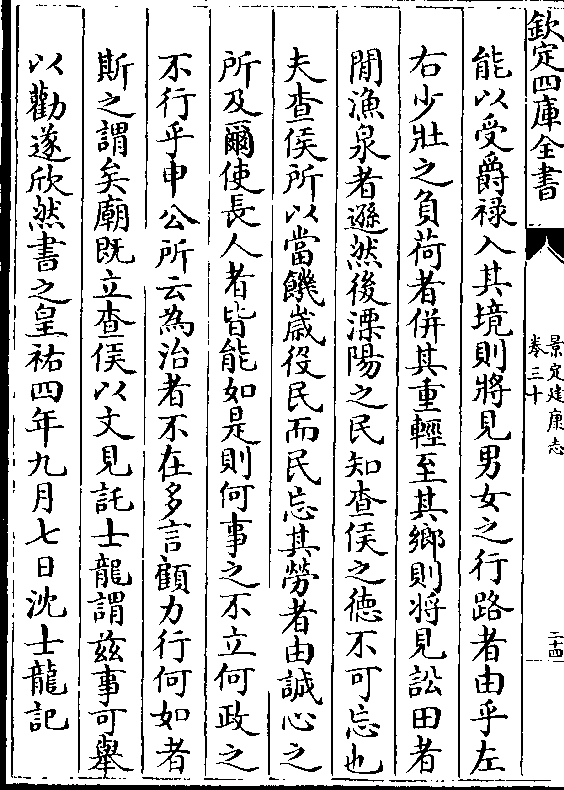 欽定四庫全書
景定建康志
卷三十
二十四
能以受爵祿入其境則將見男女之行路者由乎左
右少壯之負荷者併其重輕至其鄉則將見訟田者
閒漁泉者遜然後溧陽之民知查侯之德不可忘也
夫查侯所以當饑歲役民而民忘其勞者由誠心之
所及爾使長人者皆能如是則何事之不立何政之
不行乎申公所云為治者不在多言顧力行何如者
斯之謂矣廟既立查侯以文見託士龍謂兹事可舉
以勸遂欣然書之皇祐四年九月七日沈士龍記